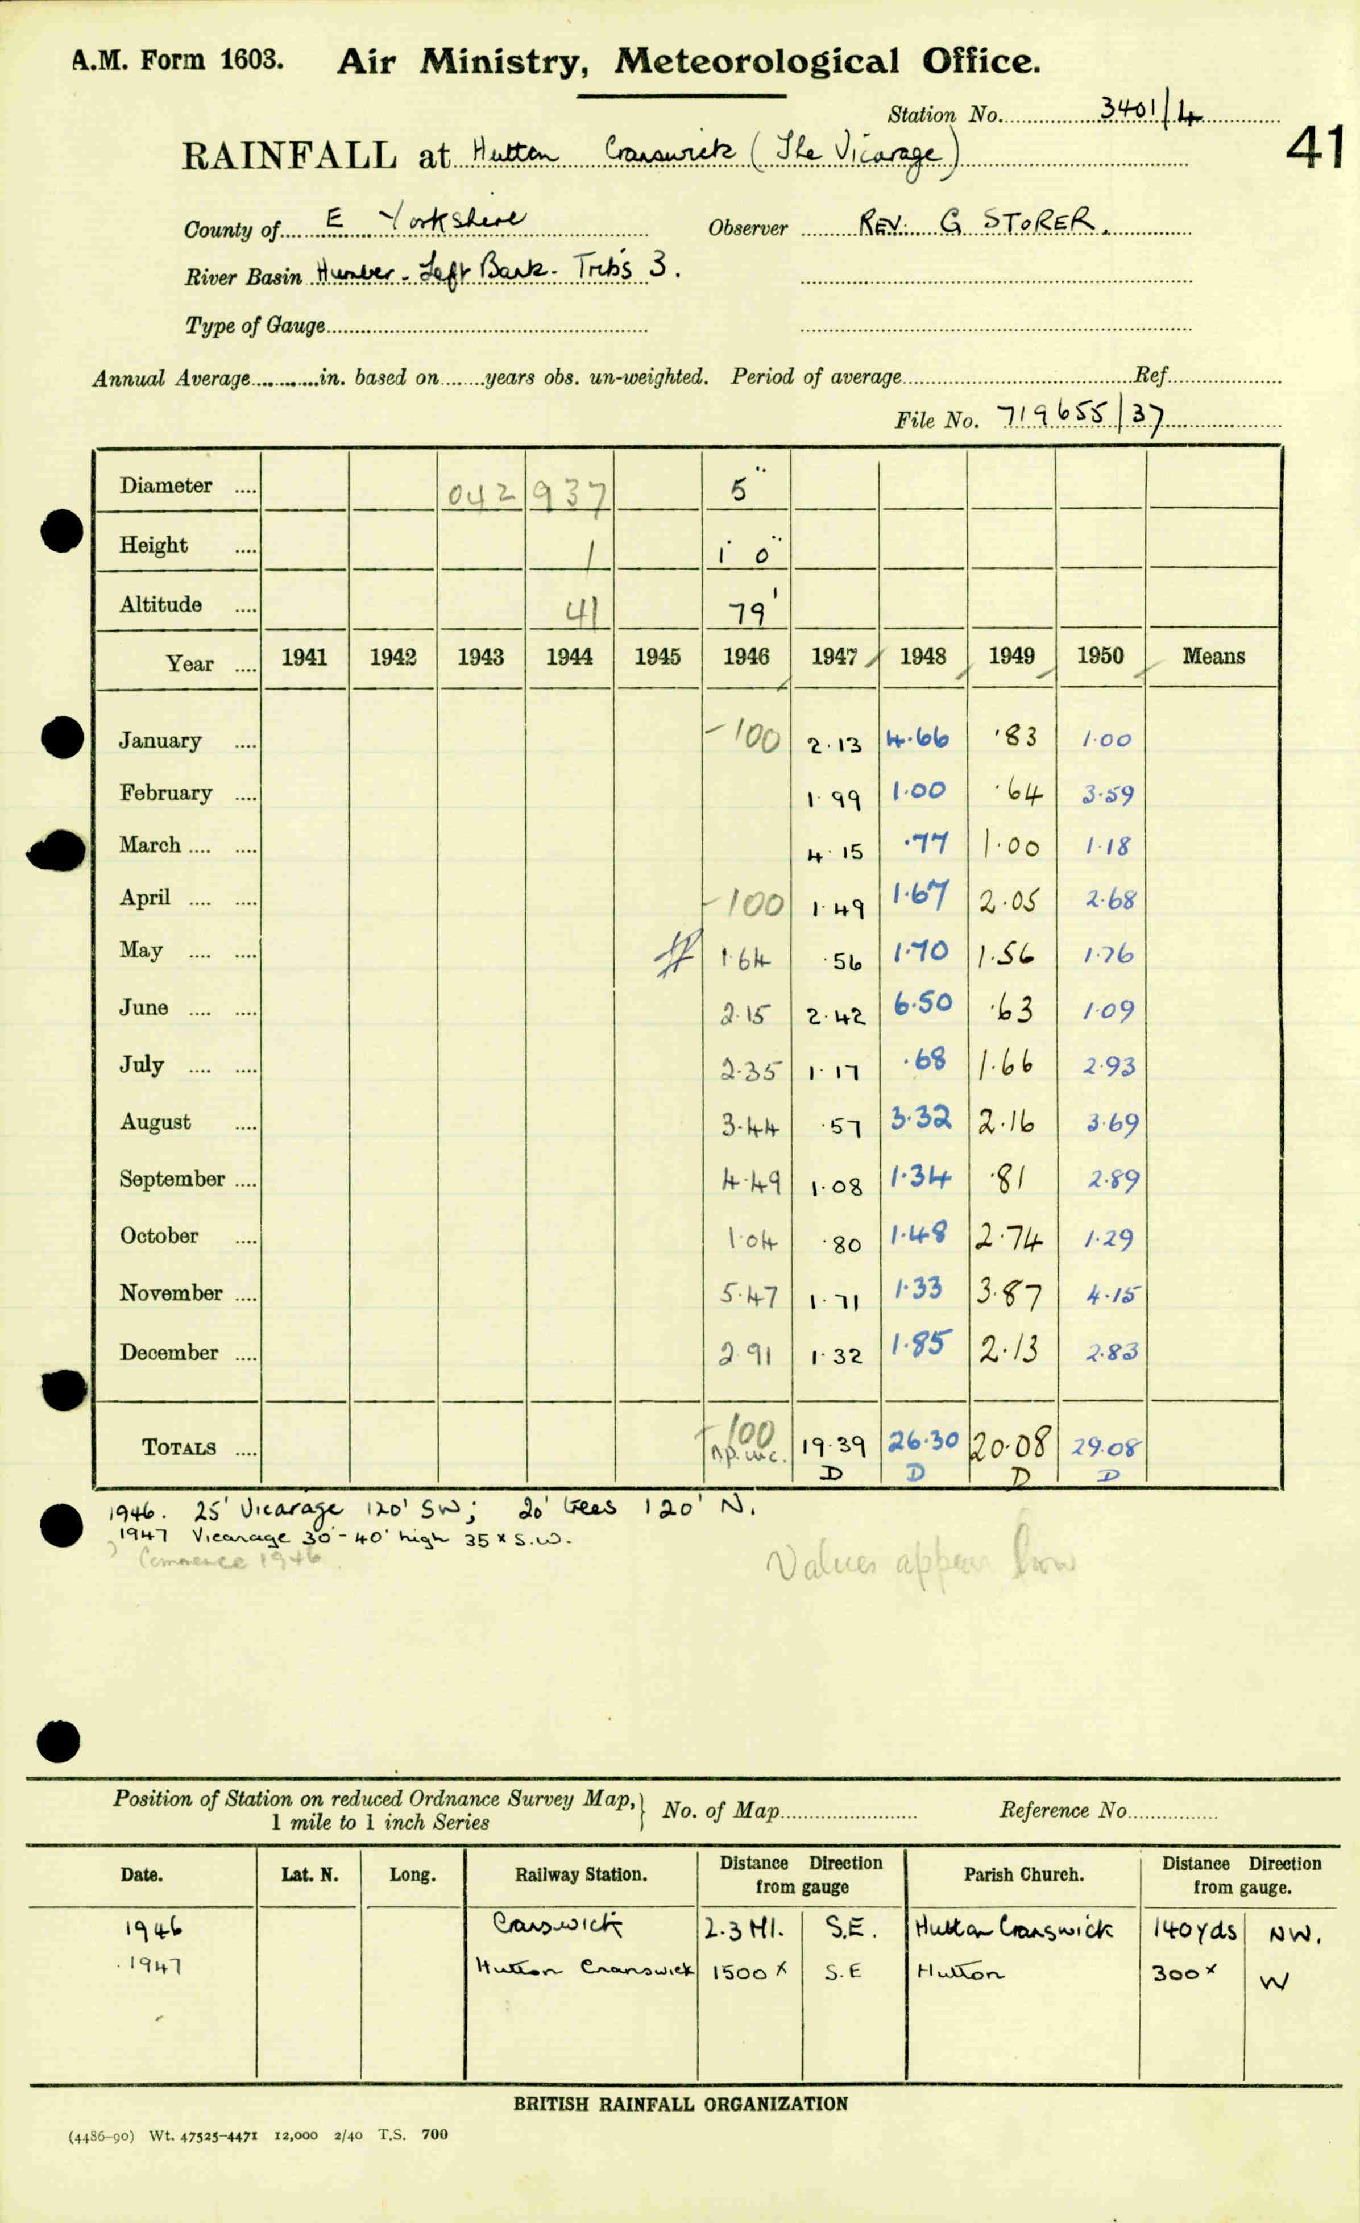 A.M. Form 1603. Air Ministry, Meteorological Office.
Station No. 3401/4
41
RAINFALL at Hutton Cranswick (The Vicarage)
County of E Yorkshire Observer REV. G STORER.
River Basin Humber - Left Bank - Tribs 3.
Type of Gauge
Annual Average in. based on years obs. un-weighted. Period of average Ref.
File No. 719655/37
Diameter 042 937 5"
Height 1 1' 0"
Altitude 41 79'
Year 1941 1942 1943 1944 1945 1946 1947 1948 1949 1950 Means
January -100 2.13 4.66 .83 1.00
February 1.99 1.00 .64 3.59
March 4.15 .77 1.00 1.18
April -100 1.49 1.67 2.05 2.68
May 1.64 .56 1.70 1.56 1.76
June 2.15 2.42 6.50 .63 1.09
July 2.35 1.17 .68 1.66 2.93
August 3.44 .57 3.32 2.16 3.69
September 4.49 1.08 1.34 .81 2.89
October 1.04 .80 1.48 2.74 1.29
November 5.47 1.71 1.33 3.87 4.15
December 2.91 1.32 1.85 2.13 2.83
TOTALS -100 19.39 26.30 20.08 29.08
D D D D
1946. 25' Vicarage 120' SW; 20' trees 120' N.
1947 Vicarage 30'-40' high 35 x S.W.
? Commence 1946
Values appear low
Position of Station on reduced Ordnance Survey Map, 1 mile to 1 inch Series } No. of Map Reference No.
Date. Lat. N. Long. Railway Station. Distance Direction from gauge Parish Church. Distance Direction from gauge.
1946 Cranswick 2.3 Ml. S.E. Hutton Cranswick 140yds NW.
1947 Hutton Cranswick 1500 x S.E Hutton 300 x W
BRITISH RAINFALL ORGANIZATION
(4486-90) Wt. 47525-4471 12,000 2/40 T.S. 700